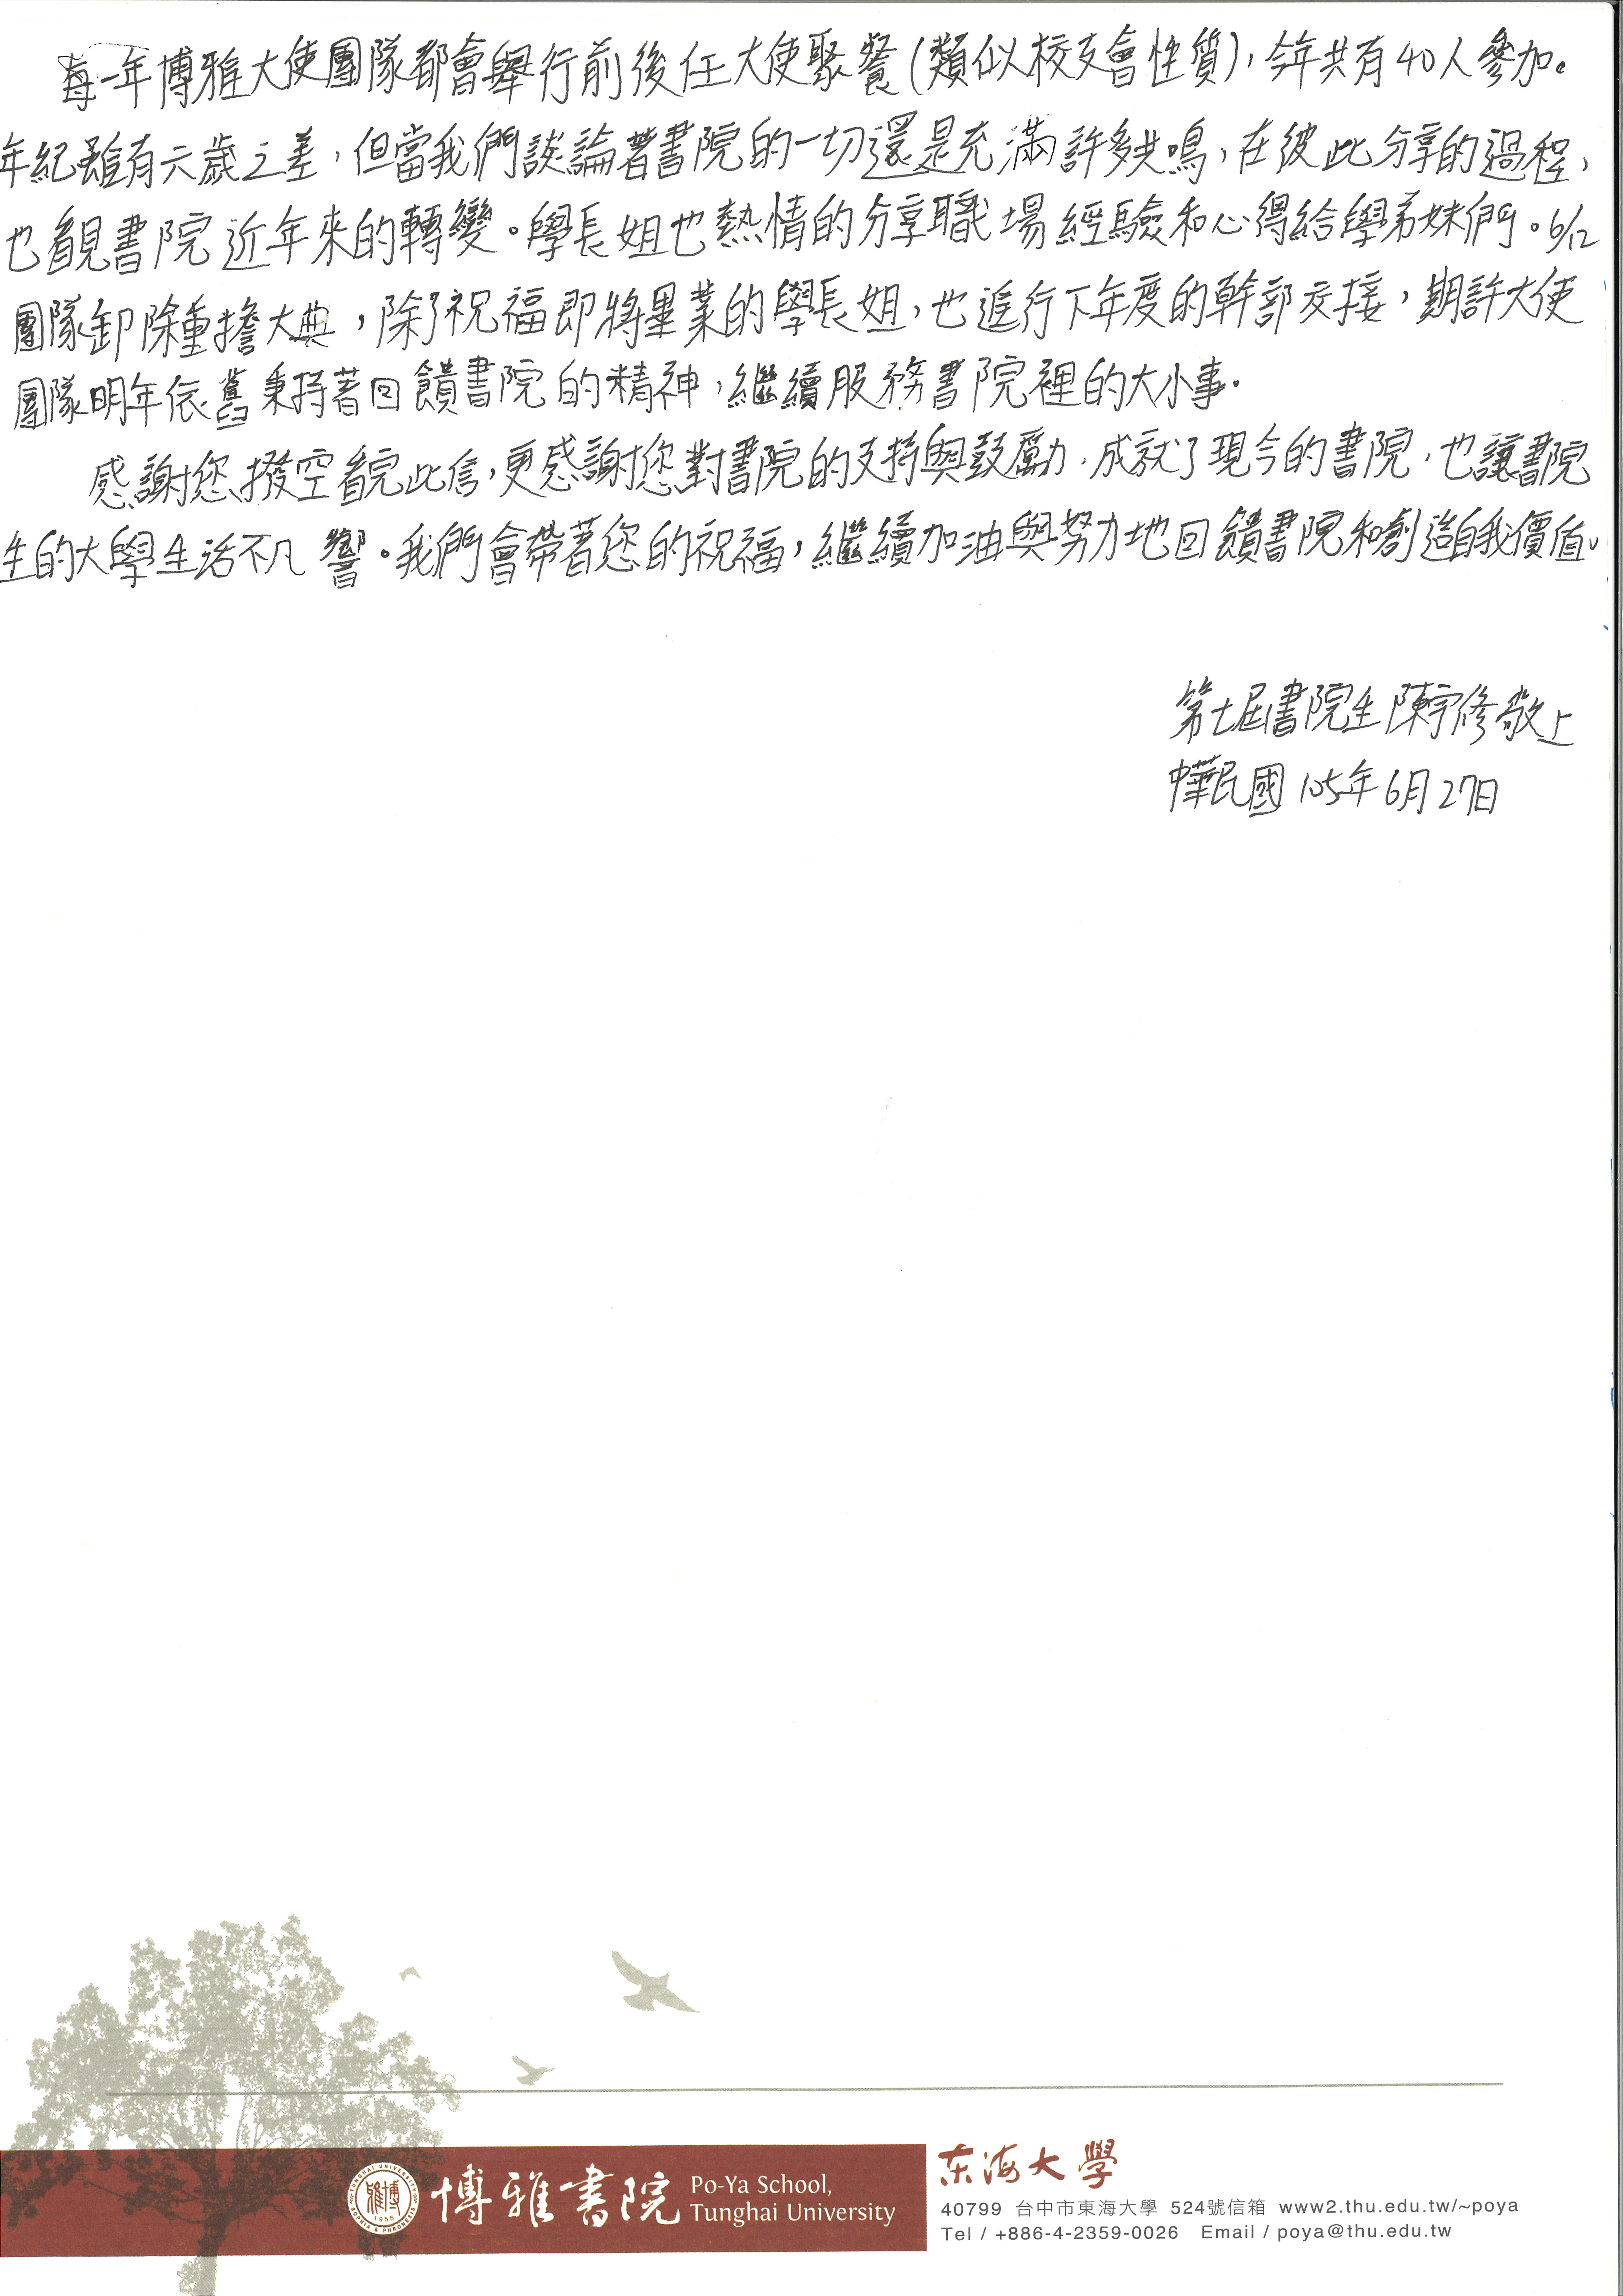 每一年博雅大使團隊都會舉行前後任大使聚餐(類似校友會性質),今年共有40人參加。
年紀雖有六歲之差,但當我們談論著書院的一切還是充滿許多共鳴,在彼此分享的過程,
也看見書院近年來的轉變。學長姐也熱情的分享職場經驗和心得給學弟妹們。6/12
團隊卸除重擔大典,除了祝福即將畢業的學長姐,也進行下年度的幹部交接,期許大使
團隊明年依舊秉持著回饋書院的精神,繼續服務書院裡的大小事。
感謝您撥空看完此信,更感謝您對書院的支持與鼓勵,成就了現今的書院,也讓書院
生的大學生活不凡響。我們會帶著您的祝福,繼續加油與努力地回饋書院和創造自我價值。
第七屆書院生陳宇修敬上
中華民國105年6月27日
博雅書院 Po-Ya School,
Tunghai University
TUNGHAI UNIVERSITY
博雅
1955
SOPHIA & PHRONESIS
东海大學
40799 台中市東海大學 524號信箱 www2.thu.edu.tw/~poya
Tel / +886-4-2359-0026 Email / poya@thu.edu.tw